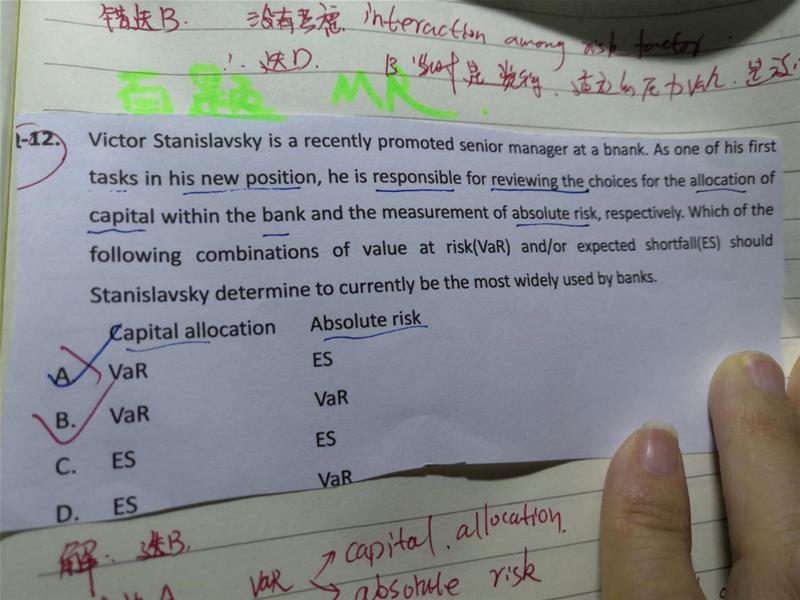 错选B. 没有考虑 interaction among risk factor.
∴ 选D. B
百题 MR.
1-12. Victor Stanislavsky is a recently promoted senior manager at a bnank. As one of his first
tasks in his new position, he is responsible for reviewing the choices for the allocation of
capital within the bank and the measurement of absolute risk, respectively. Which of the
following combinations of value at risk(VaR) and/or expected shortfall(ES) should
Stanislavsky determine to currently be the most widely used by banks.
Capital allocation Absolute risk
A. VaR ES
B. VaR VaR
C. ES ES
D. ES VaR
解: 选B.
VaR capital allocation.
absolute risk